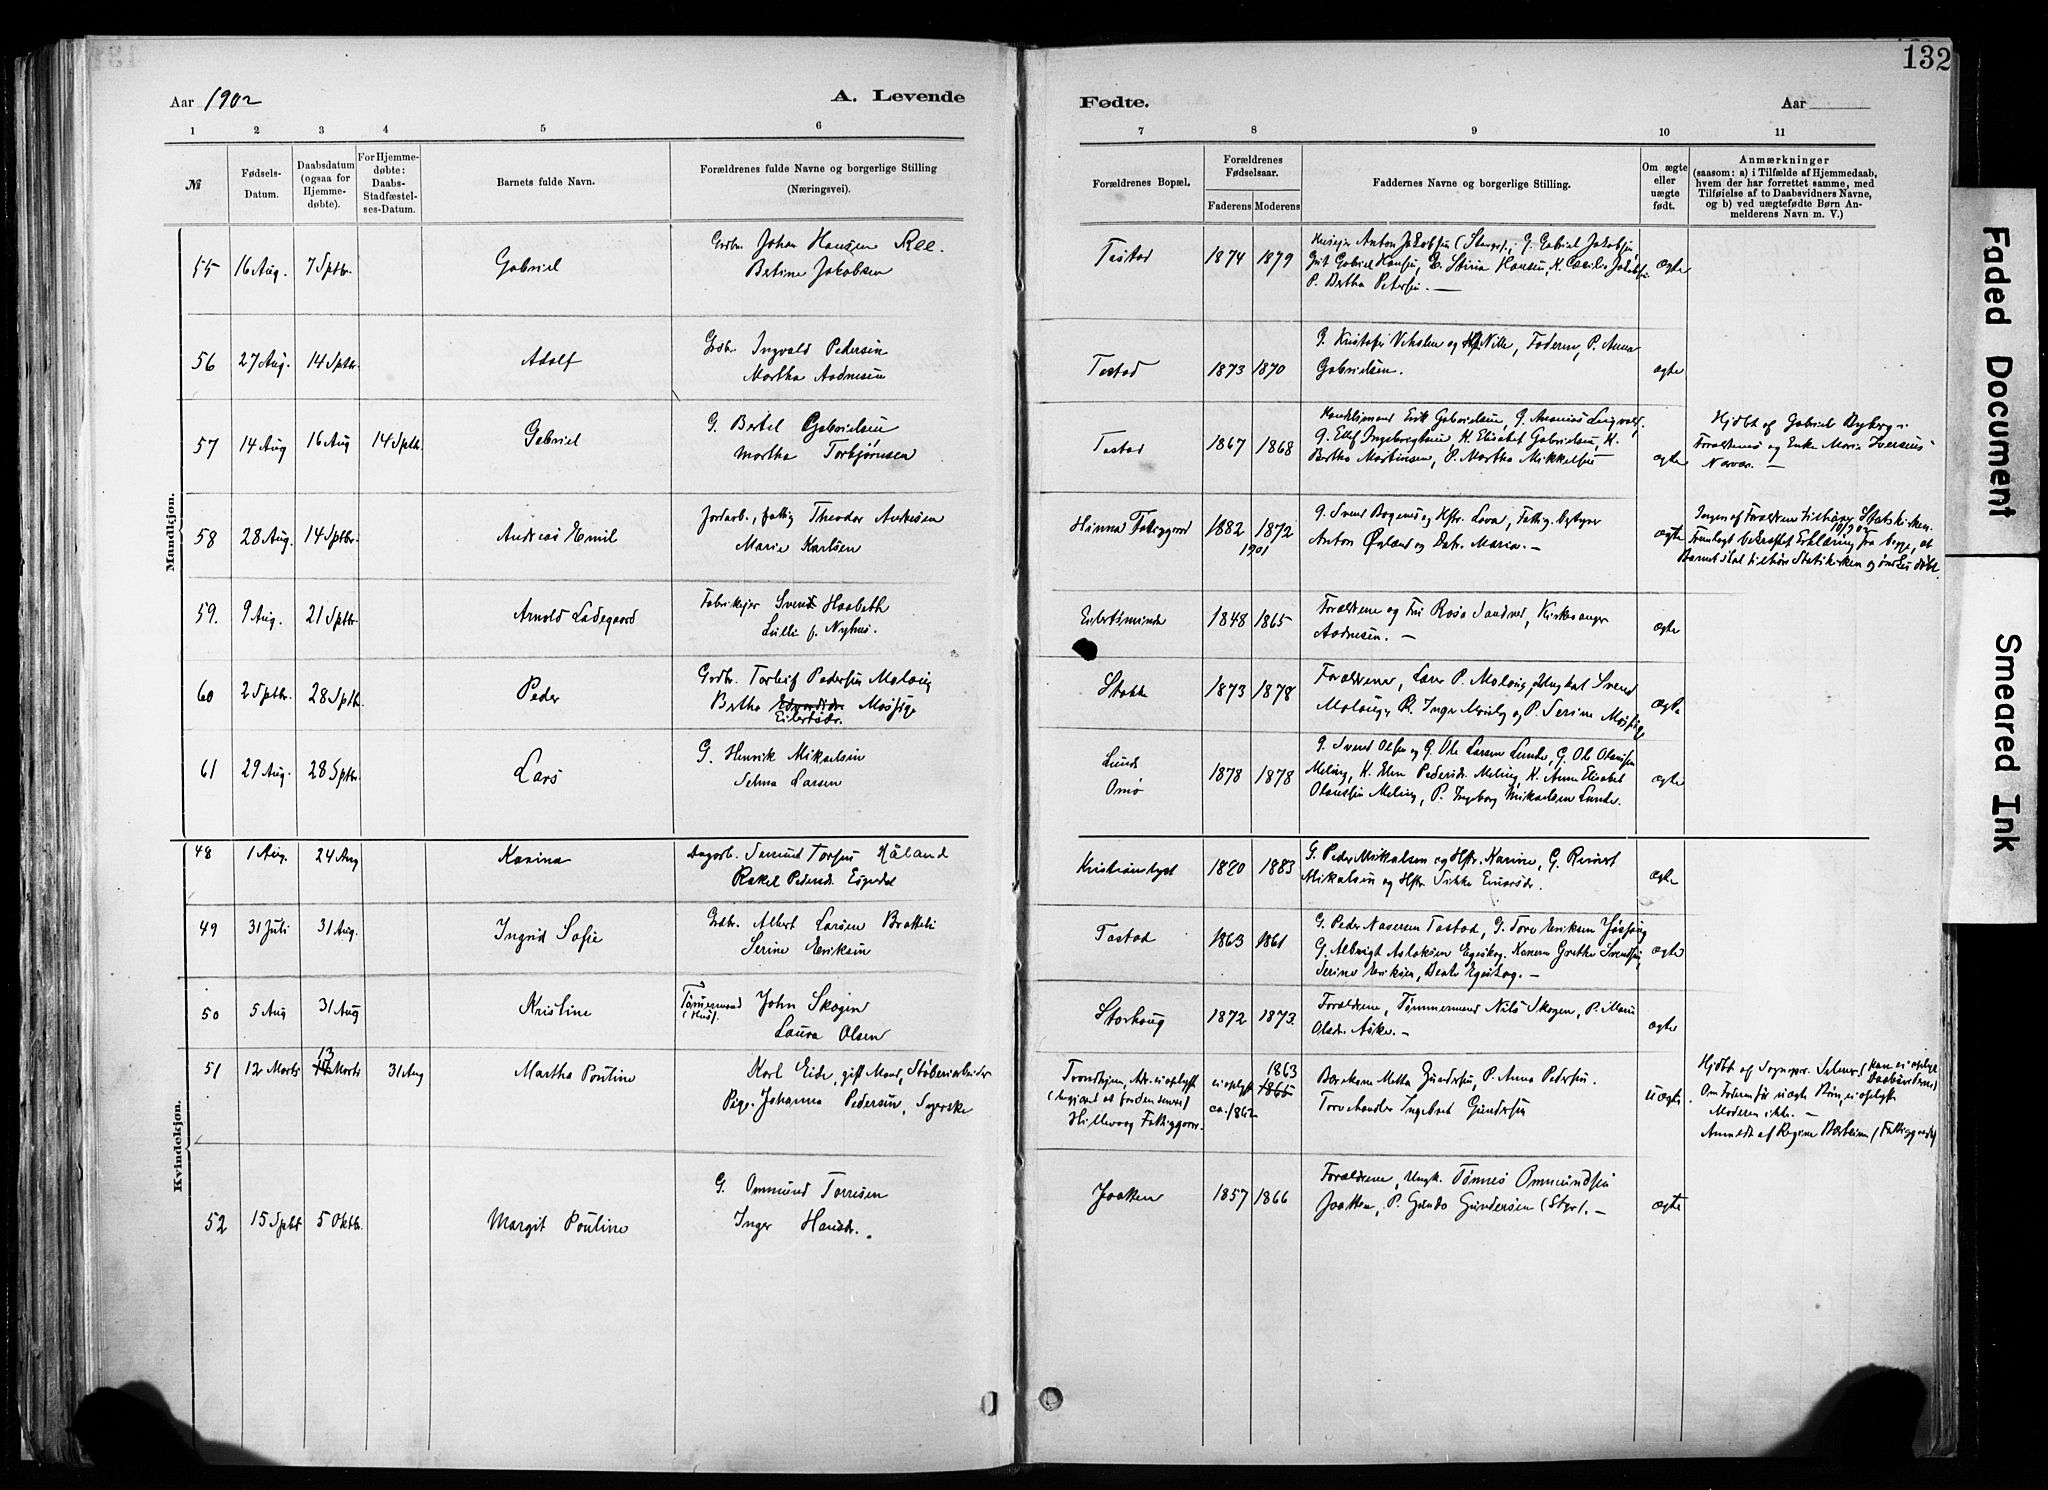 132
Aar 1902
A. Levende
Fødte.
Aar
1 2 3 4 5 6 7 8 9 10 11
№
Fødsels-
Datum.
Daabsdatum
(ogsaa for
Hjemme-
døbte).
For Hjemme-
døbte:
Daabs-
Stadfæstel-
ses-Datum.
Barnets fulde Navn.
Forældrenes fulde Navne og borgerlige Stilling
(Næringsvei).
Forældrenes Bopæl.
Forældrenes
Fødselsaar.
Faderens Moderens
Faddernes Navne og borgerlige Stilling.
Om ægte
eller
uægte
født.
Anmærkninger
(saasom: a) i Tilfælde af Hjemmedaab,
hvem der har forrettet samme, med
Tilføielse af to Daabsvidners Navne,
og b) ved uægtefødte Børn An-
melderens Navn m. V.)
Mandkjøn.
55 16 Aug. 7 Sptbr. Gabriel
Grdbr. Johan Hansen Ree.
Bertine Jakobsen
Tastad 1874 1879
Gabriel Hansen, Stina Hansen, K. Cecilie
P. Bertha Petersen. —
ægte
56 27 Aug. 14 Sptbr. Adolf
Grdbr. Ingvald Pedersen
Martha Aadnesen
Tastad 1873 1870
Faderen, P. Anna
Gabrielsen.
ægte
57 14 Aug 16 Aug 14 Sptbr. Gabriel
G. Bertel Gabrielsen
Martha Torbjørnsen
Tastad 1867 1868
Handelsmand Erik Gabrielsen, G. Ananias
G. Ellef Ingebregtsen, K. Elisabet Gabrielsen, K.
Bertha Martinsen, P. Martha Mikkelsen
ægte
Hjdbt af Gabriel Byberg i
Forældrenes og Enke Maria Iversens
Nærvær. —
58 28 Aug. 14 Sptbr. Andreas Emil
Jordarb., fattig Theodor Andresen
Marie Karlsen
Hinna Fattiggaard 1882 1872
1901
G. Svend Bogenes og Hstr. Lava, Fattig-
Anton Øgland og Datr. Maria. —
ægte
Ingen af Forældrene tilhører Statskirken.
Fremlagt bekræftet Erklæring fra begge, at
Barnet skal tilhøre Statskirken og ønskes døbt.
59. 9 Aug. 21 Sptbr. Arnold Ladegaard
Fabrikejer Svend Haabeth
Lulli f. Nyhus.
Eilertsminde 1848 1865
Forældrene og Frk Rosa Sandved, Kirkesanger
Aadnesen. —
ægte
60 2 Sptbr. 28 Sptbr. Peder
Grdbr. Torleif Pedersen Malaug
Bertha Eilertsdr. Møsige
Stokke 1873 1878
Forældrene, Lærer P. Malaug, Ungkarl Svend
Malaug, P. Inger og P. Serine Møsige
ægte
61 29 Aug. 28 Sptbr. Lars
G. Henrik Mikalsen
Selma Larsen
Lunde
Omø
1878 1878
G. Svend Olsen og G. Ole Larsen Lunde, G. Ole Olausen
Meling, K. Elen Pedersdr. Meling, K. Anna Elisabet
Olausen Meling, P. Ingeborg Mikalsen Lunde.
ægte
Kvindekjøn.
48 1 Aug. 24 Aug Karina
Dagarb. Torsen Håland
Rakel Pedersdr. Espedal
Kristianslyst 1880 1883
G. Peder Mikalsen og Hstr. Karine, G. Reinert
Mikalsen og Hstr. Sikke Einarsdr.
ægte
49 31 Juli 31 Aug. Ingrid Sofie
Grdbr. Albert Larsen Bratteli
Serine Eriksen
Tastad 1863 1861
G. Peder Naversen Tastad, G. Tore Eriksen Jøssang
G. Albrigt Aslaksen Egeskog. Konerne Grethe Svendsen,
Serine Eriksen, Beate Egeskog. —
ægte
50 5 Aug 31 Aug Kristine
Tømmermand John Skogen
(Hus). Laura Olsen
Storhaug 1872 1873.
Forældrene, Tømmermand Nils Skogen, P. Marie
Olsdr. Aske. —
ægte
51 12 Marts 13 Marts 31 Aug Martha Pouline
Karl Eide, gift Mand, Støberiarbeider
Pige Johanna Pedersen, Syerske
Trondhjem, Adr. ei oplyst
Hillevaag Fattiggaard.
ei oplyst
ca. 1862
1863
1865
Metta Gundersen, P. Anna Pedersen.
Torvehandler Ingebret Gundersen
uægte
Hjdbt af Sognepr. Selmer (kan ei oplyse
Daabsvidnerne)
Om Faderen før uægte Børn, ei oplyst
Moderen ikke. —
Anmeldt af Regine (Fattiggaard)
52 15 Sptbr 5 Oktbr. Margit Pouline
G. Ommund Torresen
Inger Hansdr.
Jaatten 1857 1866
Forældrene, Ungk. Tønnes Ommundsen
Jaatten, P. Gunda Gundersen (Styr). —
ægte
Faded Document
Smeared Ink